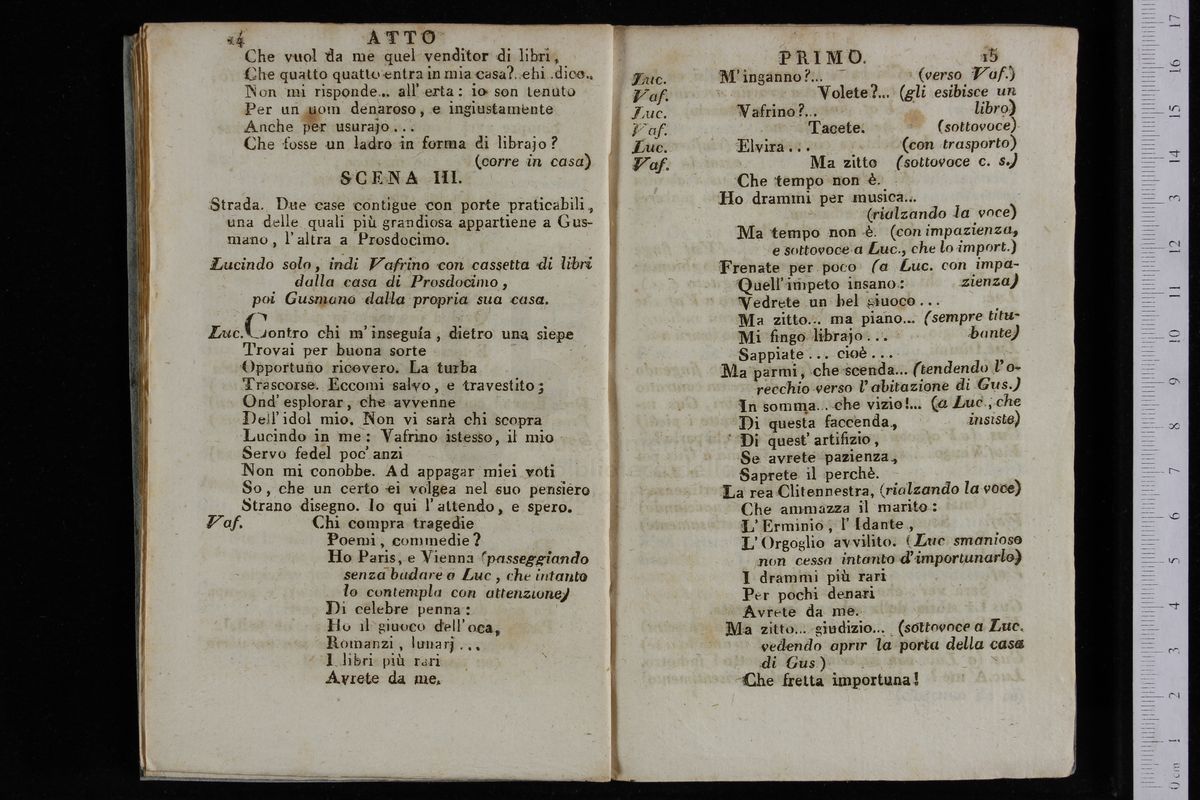 14 ATTO
Che vuol da me quel venditor di libri,
Che quatto quatto entra in mia casa? ehi .dico..
Non mi risponde.. all' erta: io son tenuto
Per un uom denaroso, e ingiustamente
Anche per usurajo...
Che fosse un ladro in forma di librajo?
(corre in casa)
SCENA III.
Strada. Due case contigue con porte praticabili,
una delle quali più grandiosa appartiene a Gus-
mano, l'altra a Prosdocimo.
Lucindo solo, indi Vafrino con cassetta di libri
dalla casa di Prosdocimo,
poi Gusmano dalla propria sua casa.
Luc. Contro chi m'inseguía, dietro una siepe
Trovai per buona sorte
Opportuno ricovero. La turba
Trascorse. Eccomi salvo, e travestito;
Ond' esplorar, che avvenne
Dell' idol mio. Non vi sarà chi scopra
Lucindo in me: Vafrino istesso, il mio
Servo fedel poc' anzi
Non mi conobbe. Ad appagar miei voti
So, che un certo ei volgea nel suo pensiero
Strano disegno. Io qui l'attendo, e spero.
Vaf. Chi compra tragedie
Poemi, commedie?
Ho Paris, e Vienna (passeggiando
senza badare a Luc, che intanto
lo contempla con attenzione)
Di celebre penna:
Ho il giuoco dell'oca,
Romanzi, lunarj...
I libri più rari
Avrete da me.
PRIMO. 15
Luc. M'inganno?... (verso Vaf.)
Vaf. Volete?... (gli esibisce un
Luc. Vafrino?... libro)
Vaf. Tacete. (sottovoce)
Luc. Elvira... (con trasporto)
Vaf. Ma zitto (sottovoce c. s.)
Che tempo non è.
Ho drammi per musica...
(rialzando la voce)
Ma tempo non è. (con impazienza,
e sottovoce a Luc., che lo import.)
Frenate per poco (a Luc. con impa-
Quell' impeto insano: zienza)
Vedrete un bel giuoco...
Ma zitto... ma piano... (sempre titu-
Mi fingo librajo... bante)
Sappiate... cioè...
Ma parmi, che scenda... (tendendo l'o-
recchio verso l'abitazione di Gus.)
In somma... che vizio!... (a Luc., che
Di questa faccenda, insiste)
Di quest' artifizio,
Se avrete pazienza,
Saprete il perchè.
La rea Clitennestra, (rialzando la voce)
Che ammazza il marito:
L'Erminio, l'Idante,
L'Orgoglio avvilito. (Luc smanioso
non cessa intanto d'importunarlo)
I drammi più rari
Per pochi denari
Avrete da me.
Ma zitto... giudizio... (sottovoce a Luc.
vedendo aprir la porta della casa
di Gus)
Che fretta importuna!
0 cm 1 2 3 4 5 6 7 8 9 10 11 12 13 14 15 16 17